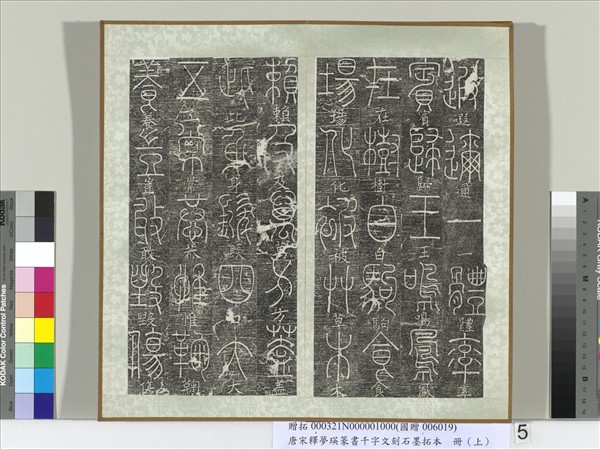 遐邇一體率
賓歸王鳴鳳
在樹白駒食
場化被草木
賴及萬方蓋
此身髮四大
五常恭惟鞠
養豈敢毀傷
KODAK Color Control Patches
贈拓 000321N000001000(國贈 006019)
唐宋釋夢瑛篆書千字文刻石墨拓本 冊（上）
5